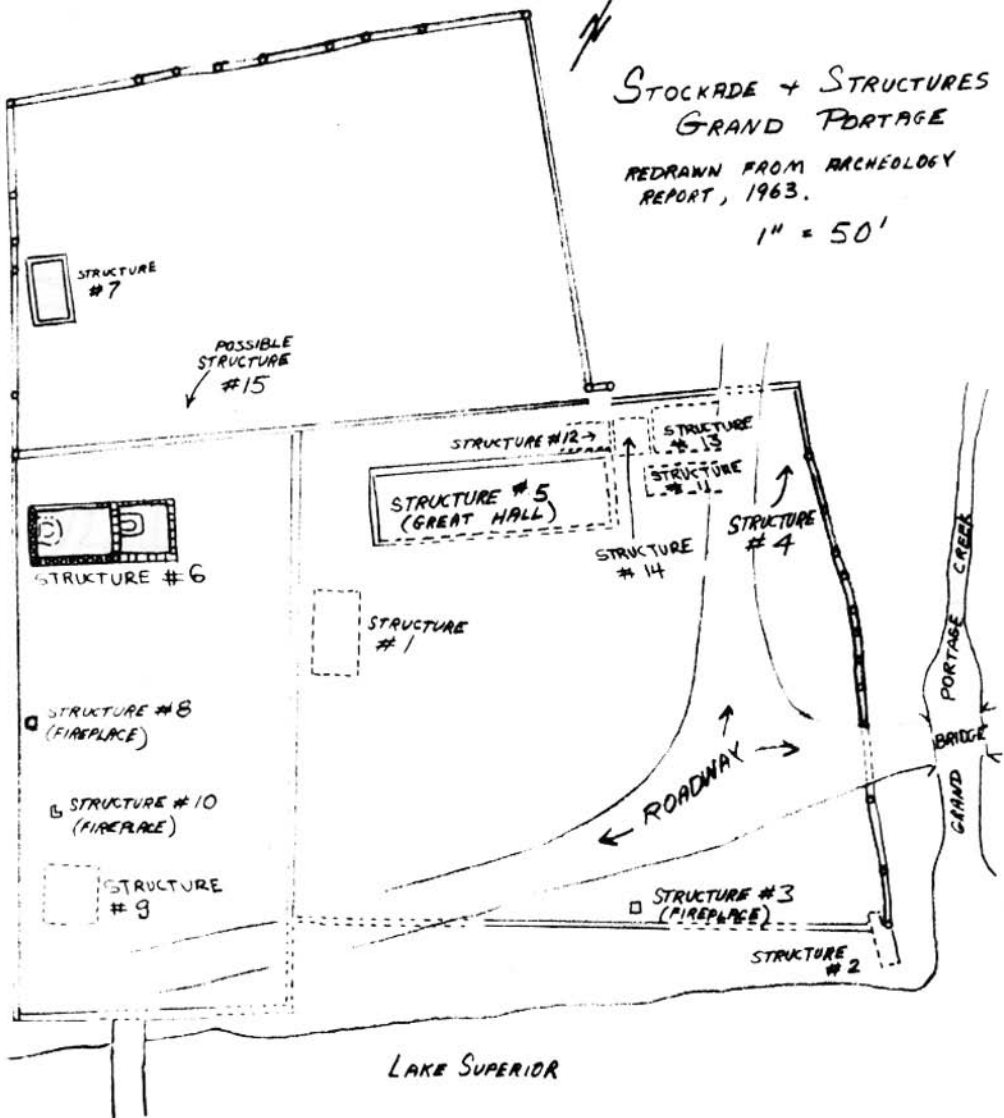 N
STOCKADE + STRUCTURES
GRAND PORTAGE
REDRAWN FROM ARCHEOLOGY
REPORT, 1963.
1" = 50'
STRUCTURE
#7
POSSIBLE
STRUCTURE
#15
STRUCTURE #12
STRUCTURE
# 13
STRUCTURE
# 11
STRUCTURE # 5
(GREAT HALL)
STRUCTURE
# 4
STRUCTURE
# 14
STRUCTURE #6
STRUCTURE
# 1
STRUCTURE #8
(FIREPLACE)
STRUCTURE #10
(FIREPLACE)
STRUCTURE
#9
ROADWAY
GRAND PORTAGE CREEK
BRIDGE
STRUCTURE #3
(FIREPLACE)
STRUCTURE
#2
LAKE SUPERIOR